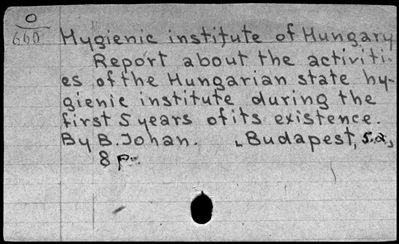 O
660
Hygienic institute of Hungary
Report about the activiti-
es of the Hungarian state hy-
gienic institute during the
first 5 years of its existence.
By B. Johan. Budapest, s.a.,
8 p.